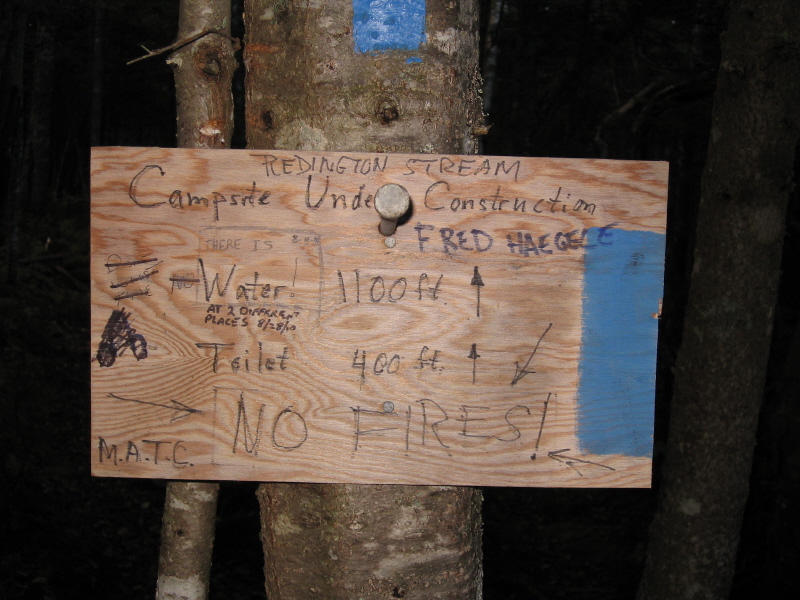 REDINGTON STREAM
Campsite Under Construction
FRED HAEGELE
THERE IS
NO Water! 1100 ft.
AT 2 DIFFERENT
PLACES 8/28/10
Toilet 400 ft.
NO FIRES!
M.A.T.C.